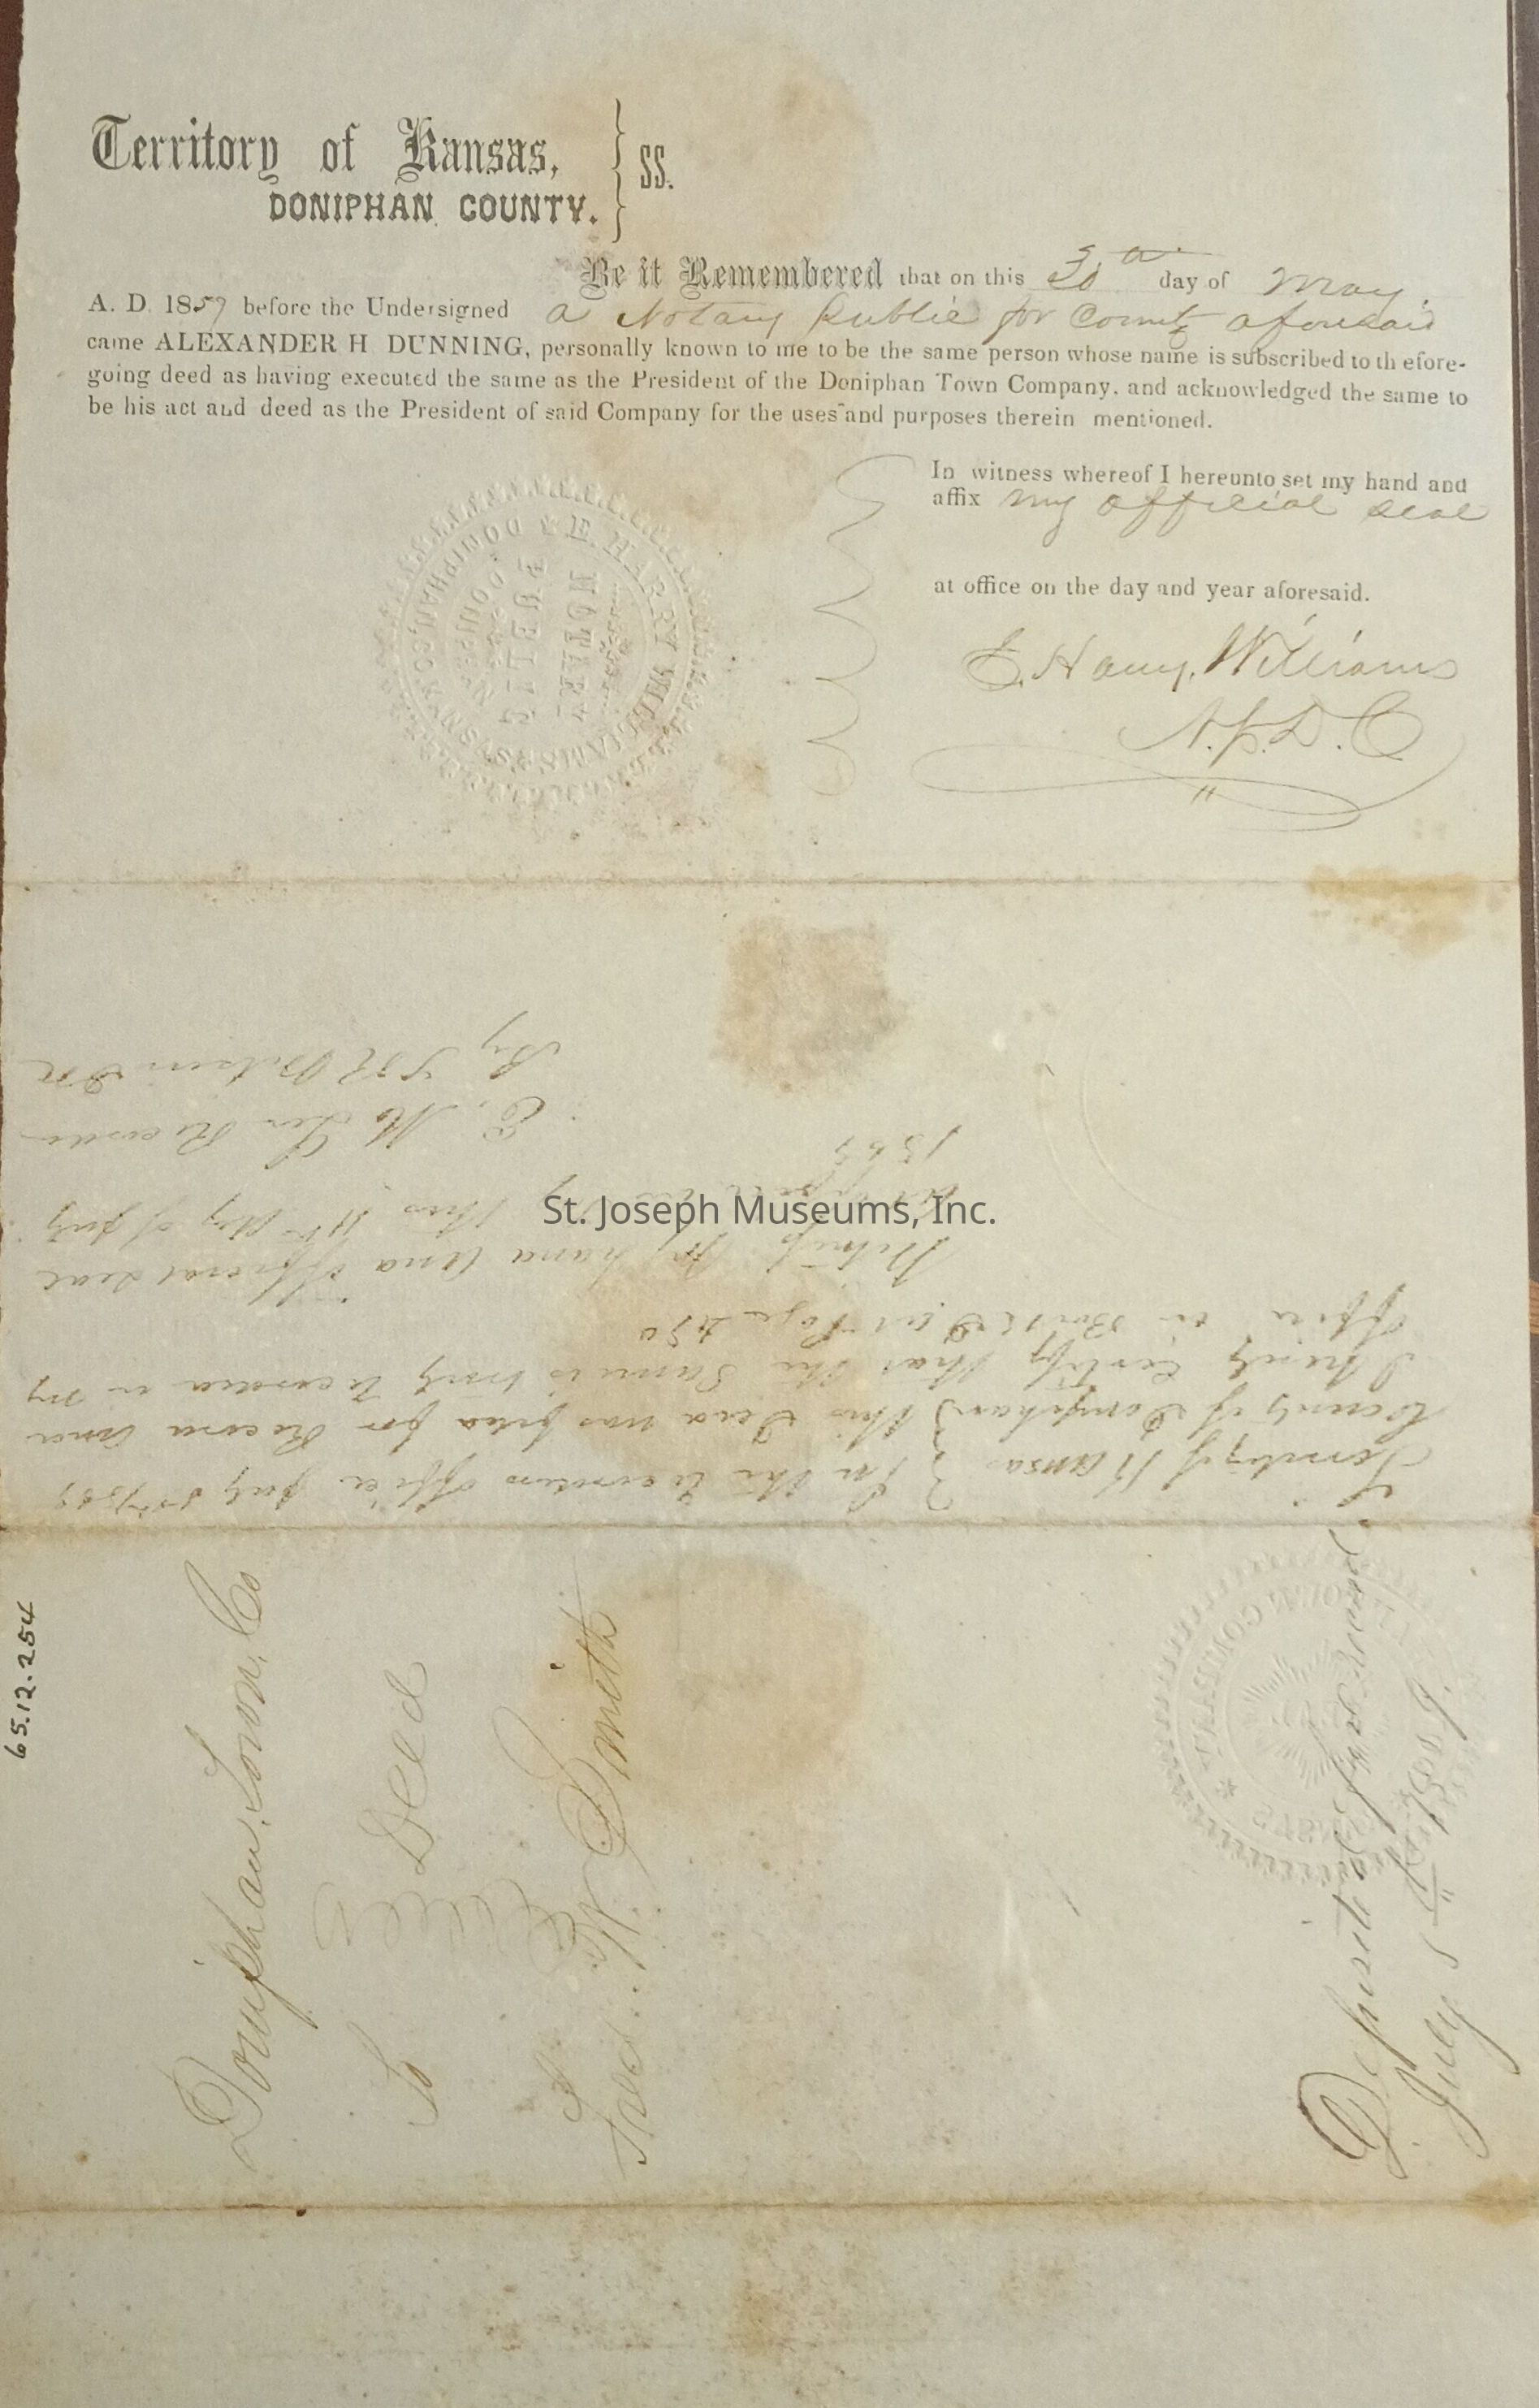 Territory of Kansas,
DONIPHAN COUNTY. } SS.
Be it Remembered that on this 30th day of May.
A. D. 1857 before the Undersigned a Notary Public for County aforesaid
came ALEXANDER H DUNNING, personally known to me to be the same person whose name is subscribed to th efore-
going deed as having executed the same as the President of the Doniphan Town Company, and acknowledged the same to
be his act and deed as the President of said Company for the uses and purposes therein mentioned.
In witness whereof I hereunto set my hand and
affix my official seal
at office on the day and year aforesaid.
E. Harry. Williams
N.P.D.C
E. HARRY WILLIAMS
NOTARY
PUBLIC
DONIPHAN
DONIPHAN CO. KANSAS
Territory of Kansas } In the Recorders office July
County of Doniphan } this Deed was filed for Record and
I hereby Certify that the Same is truly recorded in my
office in Book at Page
Witness my hand and official seal
this 11th day of July
E. M. Lee Recorder
By
St. Joseph Museums, Inc.
65.12.254
Doniphan, Town, Co
To Deed
W. Smith
Deposited for Record
July 5th
TOWN COMPANY